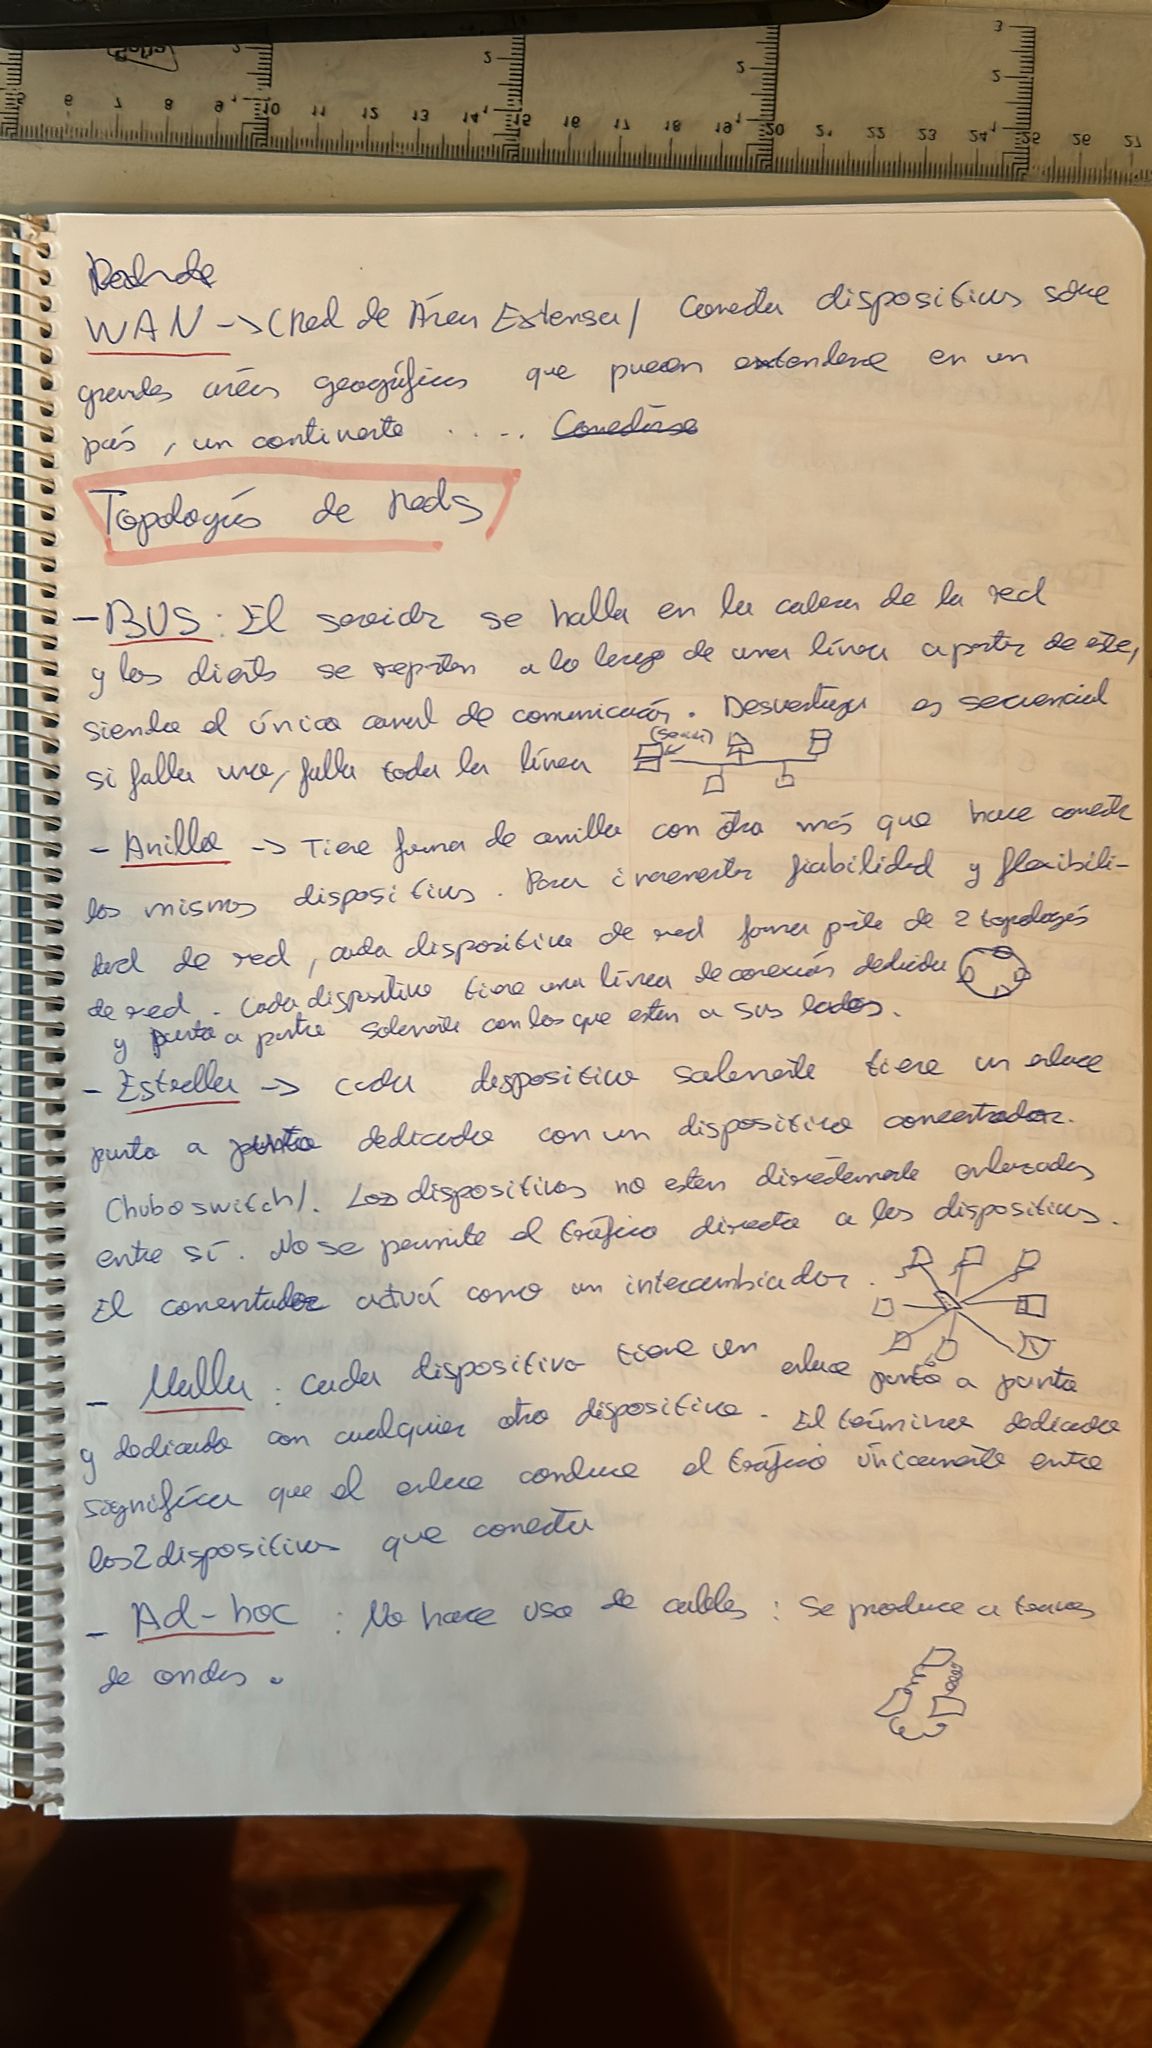 WAN -> (Red de Área Extensa) Conecta dispositivos sobre
grandes áreas geográficas que pueden extenderse en un
país, un continente .... Conectarse
Topologías de Redes
- BUS: El servidor se halla en la cabeza de la red
y los clients se reparten a lo largo de una línea a partir de este,
siendo el único canal de comunicación. Desventaja es secuencial
si falla uno, falla toda la línea
- Anillo -> Tiene forma de anillo con otro más que hace conectar
los mismos dispositivos. Para incrementar fiabilidad y flexibili-
dad de red, cada dispositivo de red forma parte de 2 topologías
de red. Cada dispositivo tiene una línea de conexión dedicada
y punto a punto solamente con los que esten a sus lados.
- Estrella -> cada dispositivo solamente tiene un enlace
punto a punto dedicado con un dispositivo concentrador.
(hub o switch). Los dispositivos no estan directamente enlazados
entre sí. No se permite el tráfico directo a los dispositivos.
El concentrador actuá como un intercambiador.
- Malla: Cada dispositivo tiene un enlace punto a punto
y dedicado con cualquier otro dispositivo. El término dedicado
significa que el enlace conduce el tráfico únicamente entre
los 2 dispositivos que conecta
- Ad-hoc: No hace uso de cables: se produce a traves
de ondas.
5 6 7 8 9 10 11 12 13 14 15 16 17 18 19 20 21 22 23 24 25 26 27